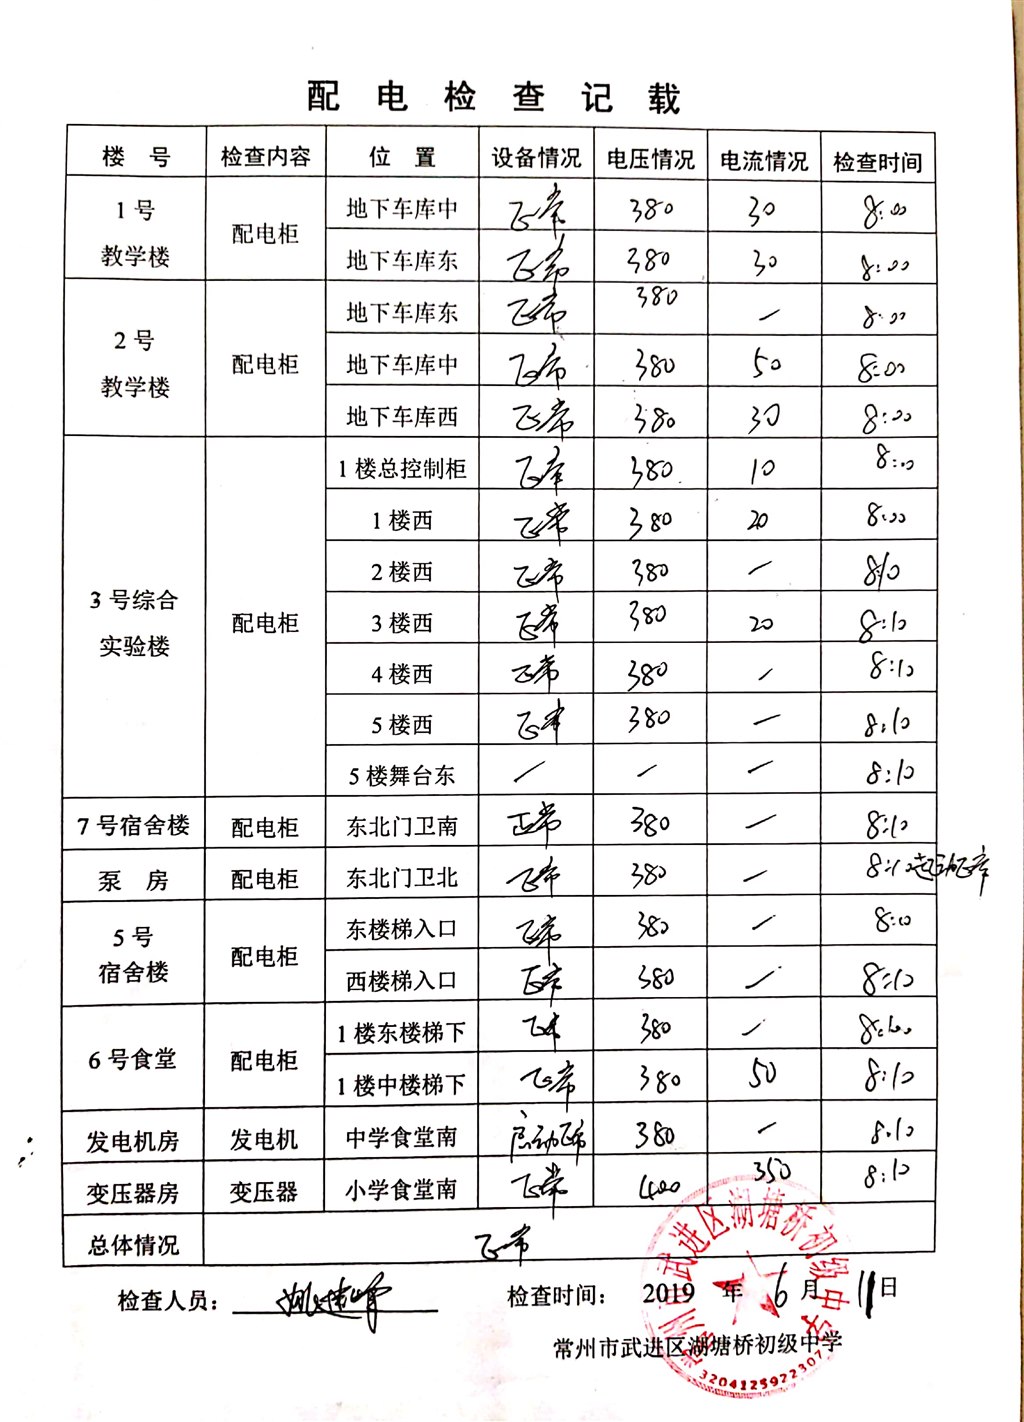 配电检查记载
楼号 检查内容 位置 设备情况 电压情况 电流情况 检查时间
1号教学楼 配电柜 地下车库中 正常 380 30 8:00
地下车库东 正常 380 30 8:00
2号教学楼 配电柜 地下车库东 正常 380 — 8:00
地下车库中 正常 380 50 8:00
地下车库西 正常 380 30 8:00
3号综合实验楼 配电柜 1楼总控制柜 正常 380 10 8:00
1楼西 正常 380 20 8:00
2楼西 正常 380 — 8:10
3楼西 正常 380 20 8:10
4楼西 正常 380 — 8:10
5楼西 正常 380 — 8:10
5楼舞台东 — — — 8:10
7号宿舍楼 配电柜 东北门卫南 正常 380 — 8:10
泵房 配电柜 东北门卫北 正常 380 — 8:10 起动正常
5号宿舍楼 配电柜 东楼梯入口 正常 380 — 8:10
西楼梯入口 正常 380 — 8:10
6号食堂 配电柜 1楼东楼梯下 正常 380 — 8:10
1楼中楼梯下 正常 380 50 8:10
发电机房 发电机 中学食堂南 启动正常 380 — 8:10
变压器房 变压器 小学食堂南 正常 400 350 8:10
总体情况 正常
检查人员： 检查时间： 2019 年 6 月 11 日
常州市武进区湖塘桥初级中学
常州市武进区湖塘桥初级中学
3204125922307